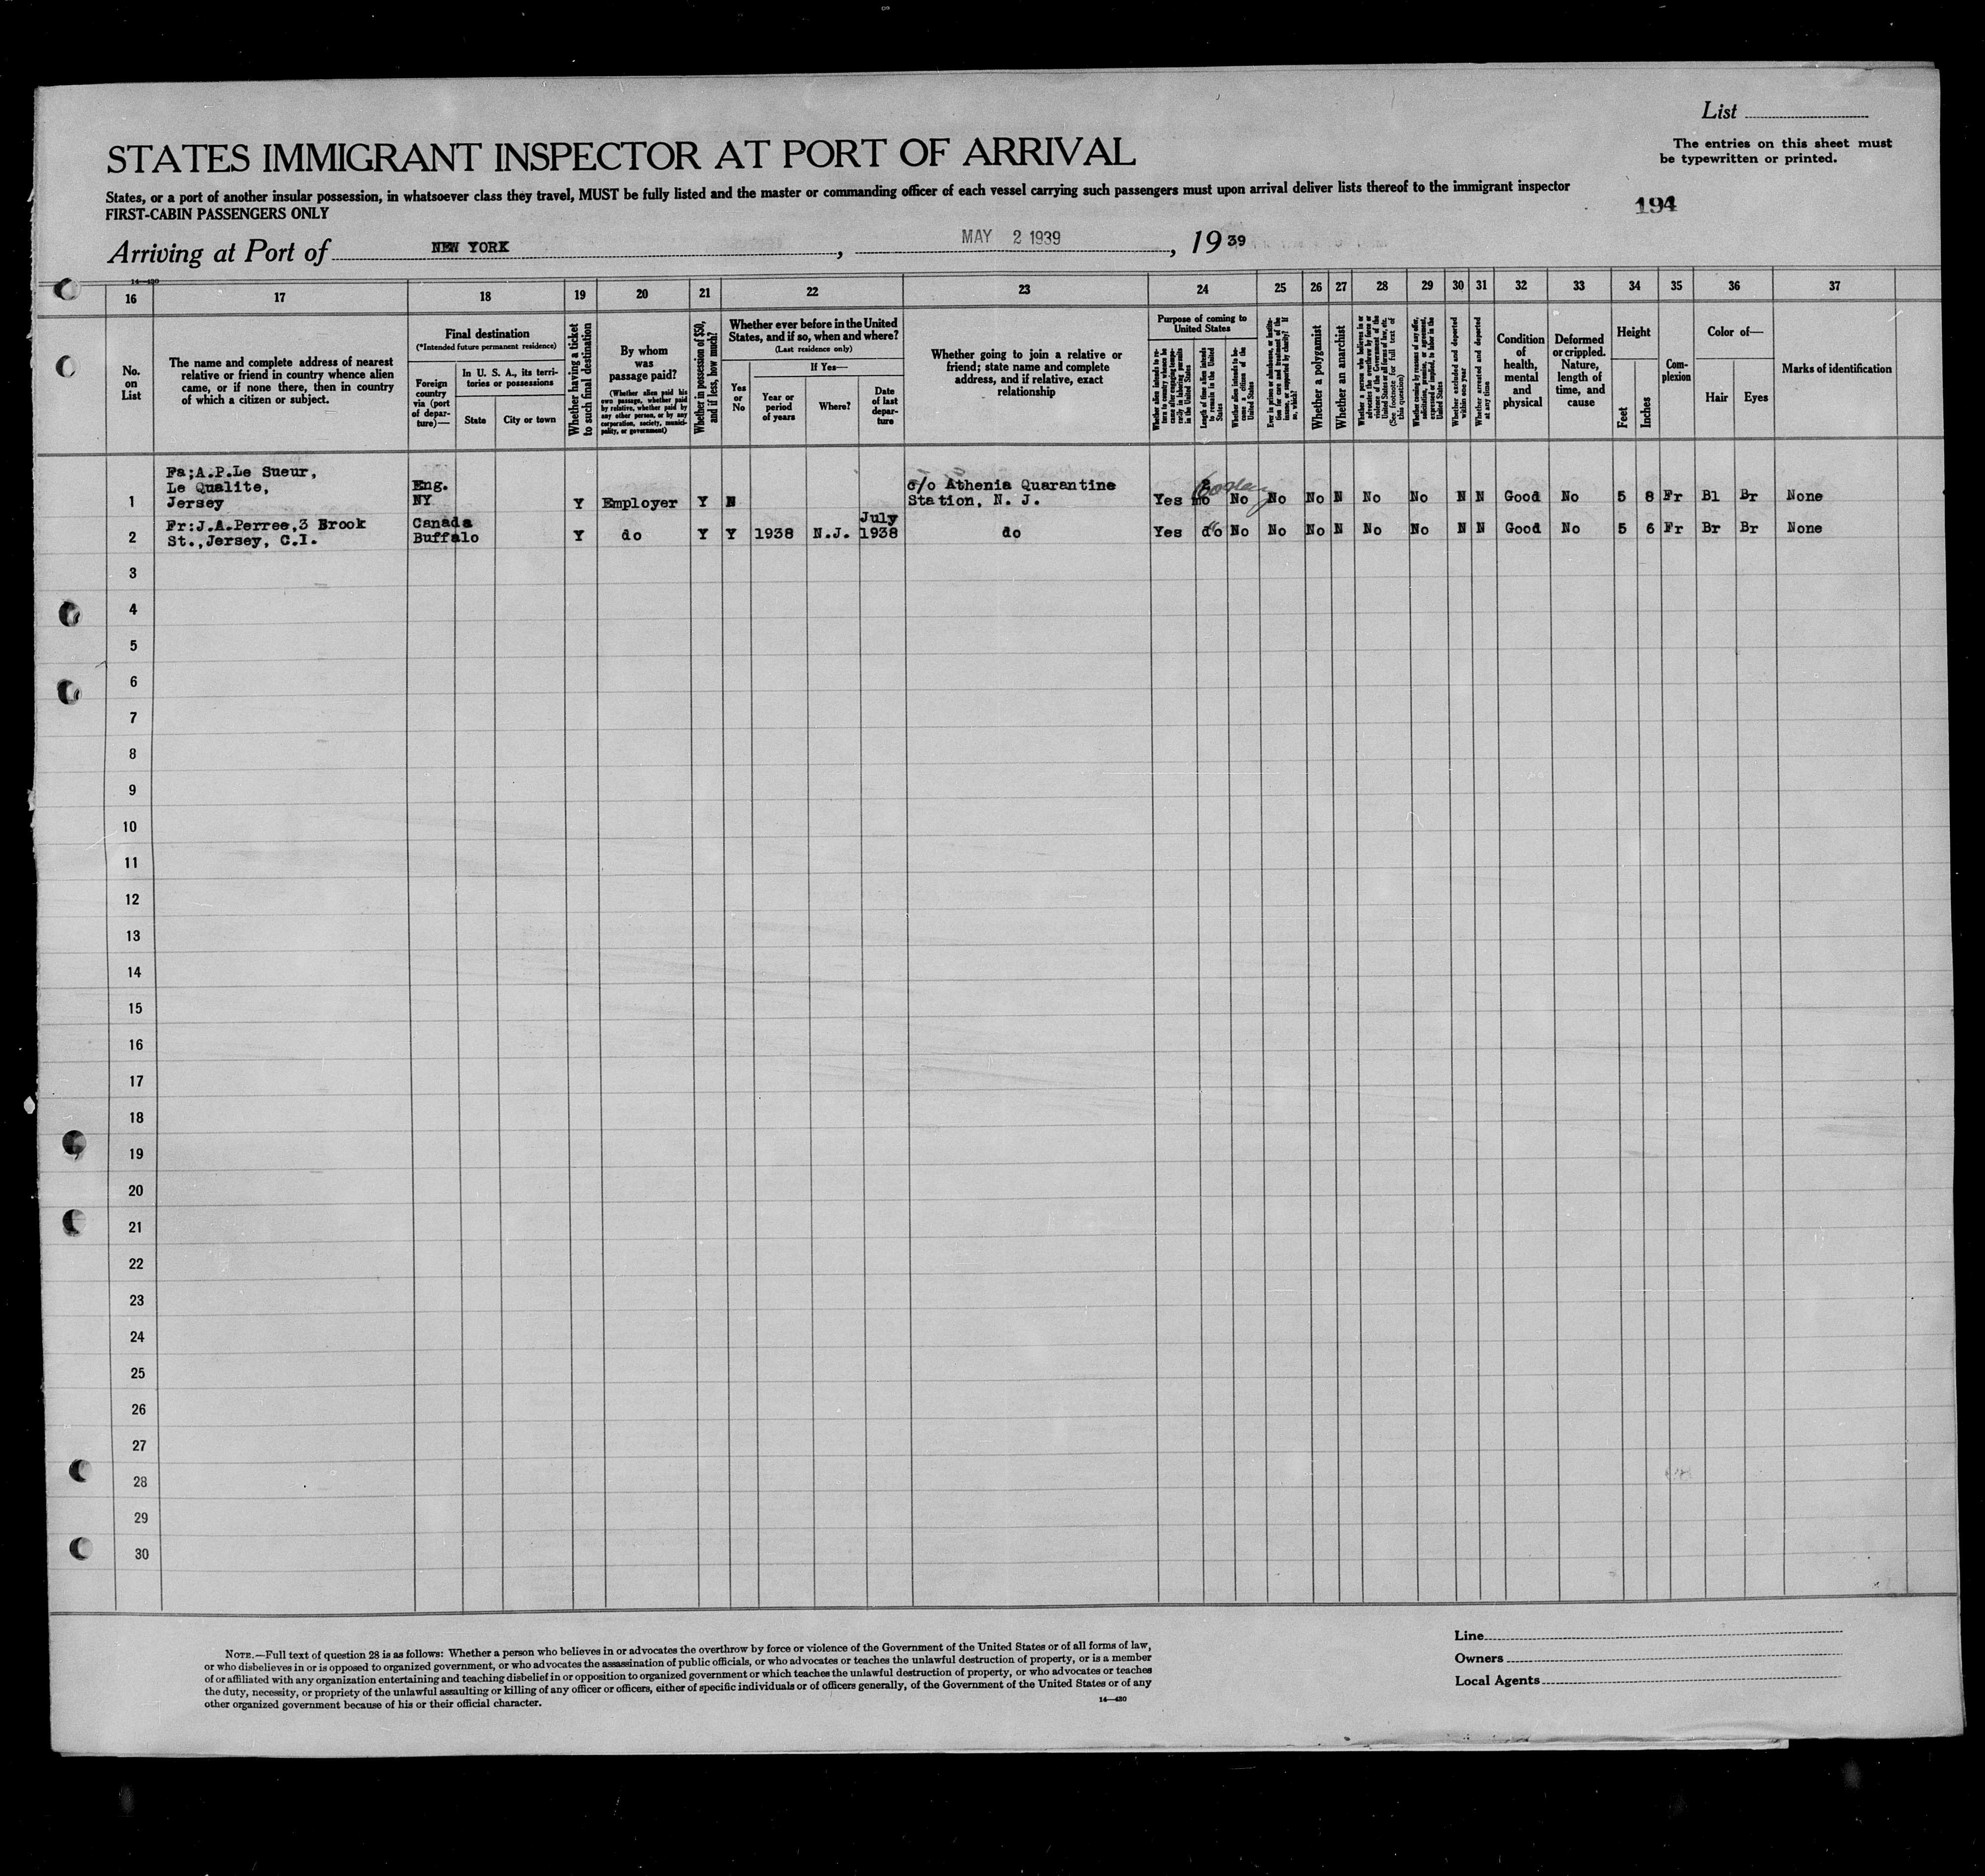 List
The entries on this sheet must
be typewritten or printed.
STATES IMMIGRANT INSPECTOR AT PORT OF ARRIVAL
States, or a port of another insular possession, in whatsoever class they travel, MUST be fully listed and the master or commanding officer of each vessel carrying such passengers must upon arrival deliver lists thereof to the immigrant inspector
FIRST-CABIN PASSENGERS ONLY
194
Arriving at Port of NEW YORK, MAY 2 1939, 19 39
14—430
16 17 18 19 20 21 22 23 24 25 26 27 28 29 30 31 32 33 34 35 36 37
No.
on
List
The name and complete address of nearest
relative or friend in country whence alien
came, or if none there, then in country
of which a citizen or subject.
Final destination
(*Intended future permanent residence)
Foreign
country
via (port
of depar-
ture)—
In U. S. A., its terri-
tories or possessions
State
City or town
Whether having a ticket
to such final destination
By whom
was
passage paid?
(Whether alien paid his
own passage, whether paid
by relative, whether paid by
any other person, or by any
corporation, society, munici-
pality, or government)
Whether in possession of $50,
and if less, how much?
Whether ever before in the United
States, and if so, when and where?
(Last residence only)
Yes
or
No
If Yes—
Year or
period
of years
Where?
Date
of last
depar-
ture
Whether going to join a relative or
friend; state name and complete
address, and if relative, exact
relationship
Purpose of coming to
United States
Whether alien intends to re-
turn to country whence he
came after engaging tempo-
rarily in laboring pursuits
in the United States
Length of time alien intends
to remain in the United
States
Whether alien intends to be-
come a citizen of the
United States
Ever in prison or almshouse, or institu-
tion for care and treatment of the
insane, or supported by charity? If
so, which?
Whether a polygamist
Whether an anarchist
Whether a person who believes in or
advocates the overthrow by force or
violence of the Government of the
United States or all forms of law, etc.
(See footnote for full text of
this question)
Whether coming by reason of any offer,
solicitation, promise, or agreement,
expressed or implied, to labor in the
United States
Whether excluded and deported
within one year
Whether arrested and deported
at any time
Condition
of
health,
mental
and
physical
Deformed
or crippled.
Nature,
length of
time, and
cause
Height
Feet
Inches
Com-
plexion
Color of—
Hair
Eyes
Marks of identification
Fa;A.P.Le Sueur,
Le Qualite, Eng. c/o Athenia Quarantine
1 Jersey NY Y Employer Y N Station, N. J. Yes No No No N No No N N Good No 5 8 Fr Bl Br None
Fr:J.A.Perree,3 Brook Canada July
2 St.,Jersey, C.I. Buffalo Y do Y Y 1938 N.J. 1938 do Yes do No No No N No No N N Good No 5 6 Fr Br Br None
3
4
5
6
7
8
9
10
11
12
13
14
15
16
17
18
19
20
21
22
23
24
25
26
27
28
29
30
NOTE.—Full text of question 28 is as follows: Whether a person who believes in or advocates the overthrow by force or violence of the Government of the United States or of all forms of law,
or who disbelieves in or is opposed to organized government, or who advocates the assassination of public officials, or who advocates or teaches the unlawful destruction of property, or is a member
of or affiliated with any organization entertaining and teaching disbelief in or opposition to organized government or which teaches the unlawful destruction of property, or who advocates or teaches
the duty, necessity, or propriety of the unlawful assaulting or killing of any officer or officers, either of specific individuals or of officers generally, of the Government of the United States or of any
other organized government because of his or their official character.
14—430
Line
Owners
Local Agents